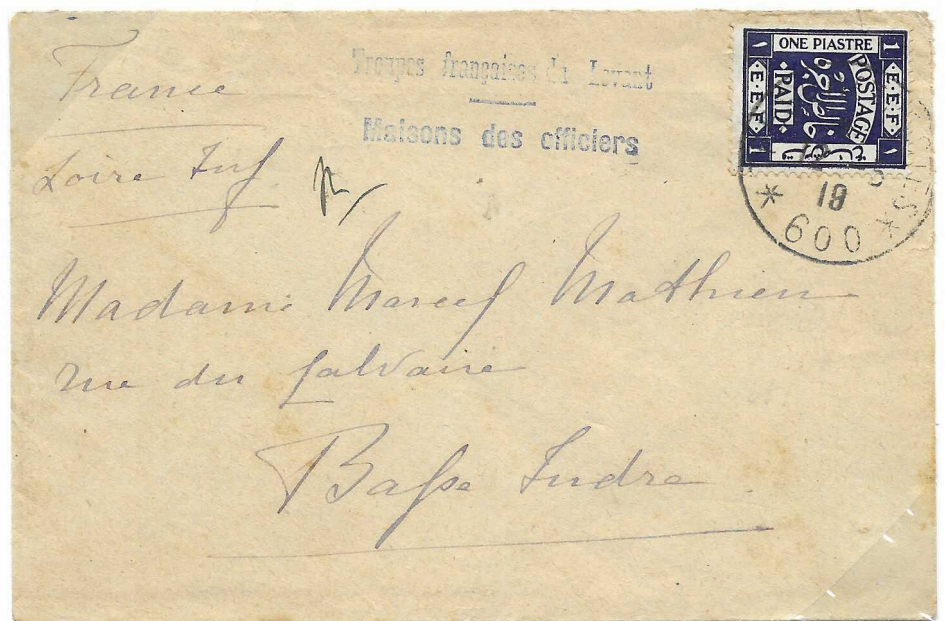 France
Loire Inf
Troupes françaises du Levant
Maisons des officiers
ONE PIASTRE
POSTAGE
PAID
E.E.F.
E.E.F.
1
1
١
١
19
600
Madame Marcel Mathieu
rue du Calvaire
Basse Indre